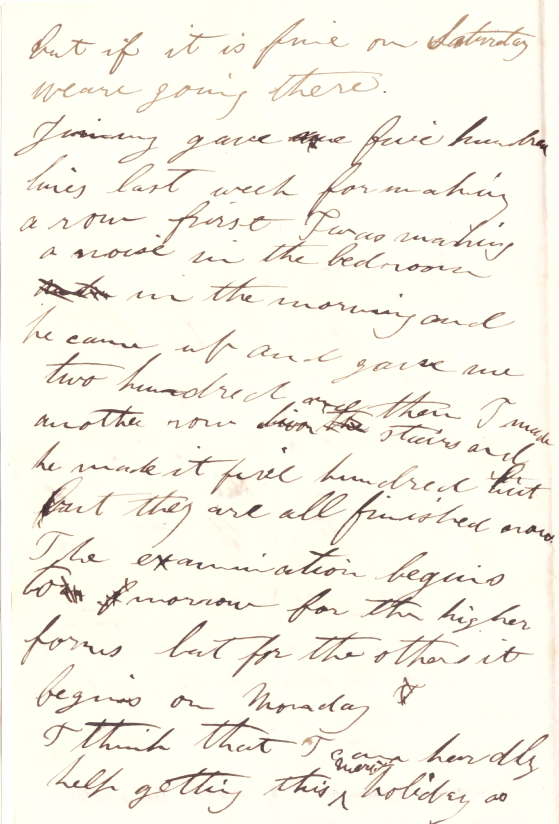 but if it is fine on Saturday
weare going there.
Jimmy gave me five hundred
lines last week for making
a row first I was making
a noise in the bedroom
in the morning and
he came up and gave me
two hundred and then I made
another row stairs and
he made it five hundred but
but they are all finished now
The examination begins
to morrow for the higher
forms but for the others it
begins on Monday
I think that I can hardly
help getting this merit holiday as